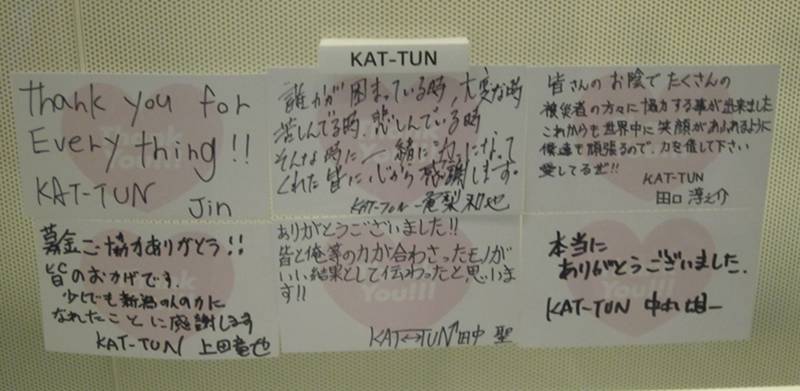 KAT-TUN
Thank you for
Everything!!
KAT-TUN Jin
誰かが困まっている時、大変な時
苦しんでる時、悲しんでいる時
そんな時に一緒に"力"になって
くれた皆に心から感謝します。
KAT-TUN 亀梨和也
皆さんのお陰でたくさんの
被災者の方々に協力する事が出来ました
これからも世界中に笑顔があふれるように
僕達も頑張るので、力を貸して下さい
愛してるぜ!!
KAT-TUN
田口 淳之介
募金ご協力ありがとう!!
皆のおかげです.
少しでも新潟の人の力に
なれたことに感謝します
KAT-TUN 上田竜也
ありがとうございました!!
皆と俺等の力が合わさったモノが
いい結果として伝わったと思いま
す!!
KAT↔TUN 田中 聖
本当に
ありがとうございました.
KAT-TUN 中丸雄一
Thank
You!!!